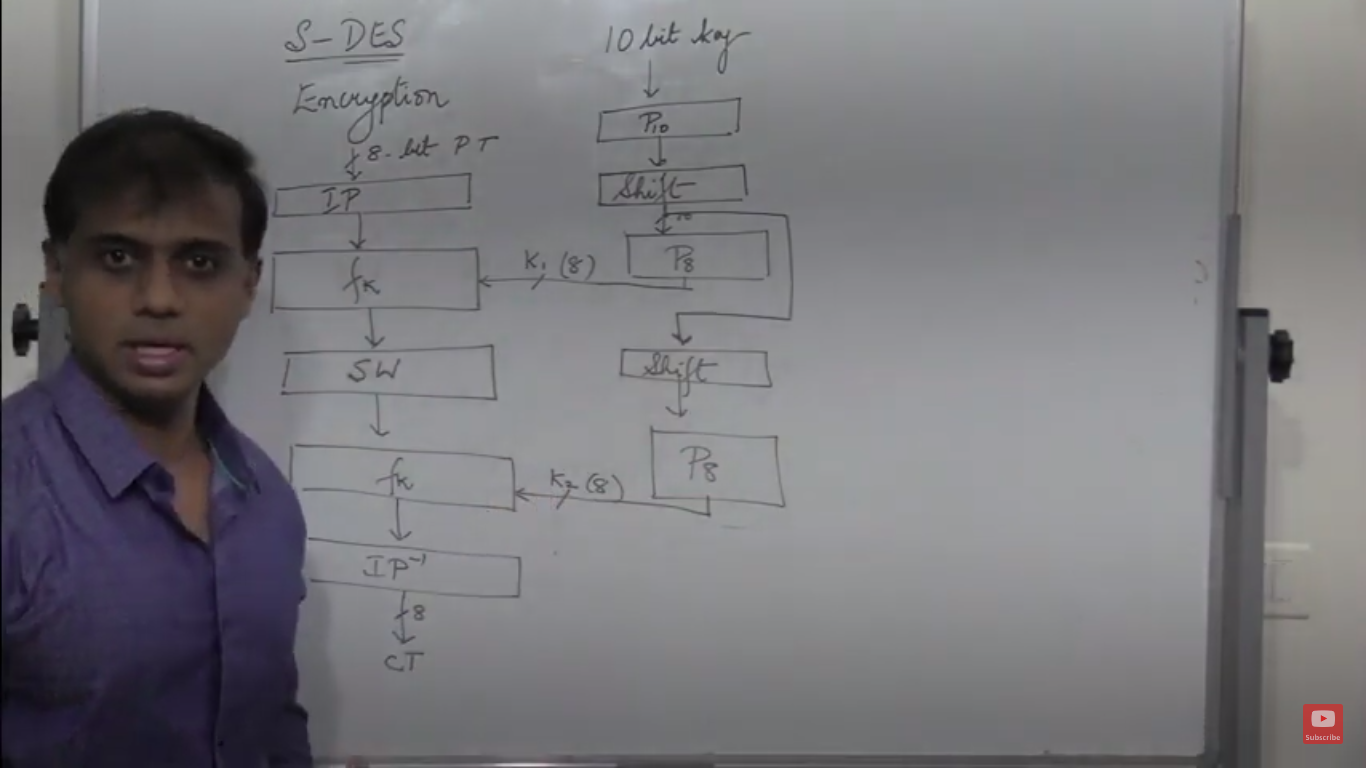 S-DES
Encryption
8-bit PT
IP
fK
SW
fK
IP⁻¹
8
CT
10 bit key
P10
Shift
10
P8
K1 (8)
Shift
P8
K2 (8)
Subscribe